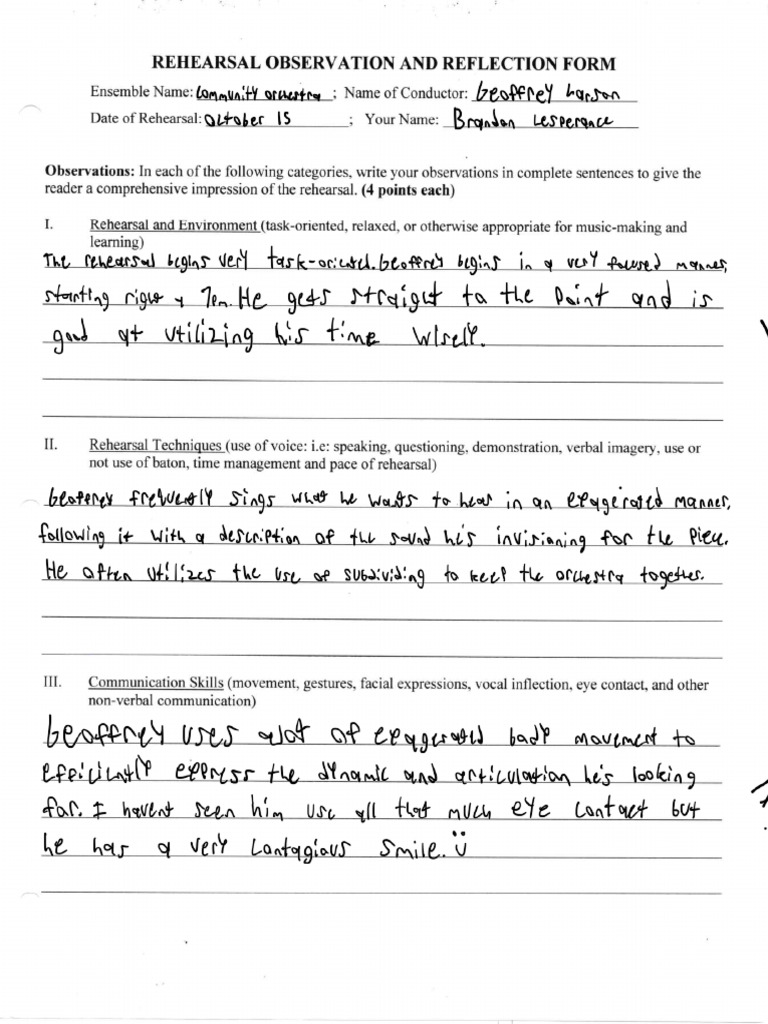 REHEARSAL OBSERVATION AND REFLECTION FORM
Ensemble Name: Community orchestra ; Name of Conductor: Geoffrey Larson
Date of Rehearsal: October 15 ; Your Name: Brandon Lesperance
Observations: In each of the following categories, write your observations in complete sentences to give the
reader a comprehensive impression of the rehearsal. (4 points each)
I. Rehearsal and Environment (task-oriented, relaxed, or otherwise appropriate for music-making and
learning)
The rehearsal begins very task-oriented. Geoffrey begins in a very focused manner,
starting right at 7pm. He gets straight to the point and is
good at utilizing his time wisely.
II. Rehearsal Techniques (use of voice: i.e: speaking, questioning, demonstration, verbal imagery, use or
not use of baton, time management and pace of rehearsal)
Geoffrey frequently sings what he wants to hear in an exaggerated manner,
following it with a description of the sound he's invisioning for the piece.
He often utilizes the use of subdividing to keep the orchestra together.
III. Communication Skills (movement, gestures, facial expressions, vocal inflection, eye contact, and other
non-verbal communication)
Geoffrey uses alot of exaggerated body movement to
efficiently express the dynamic and articulation he's looking
for. I havent seen him use all that much eye contact but
he has a very contagious smile. Ü